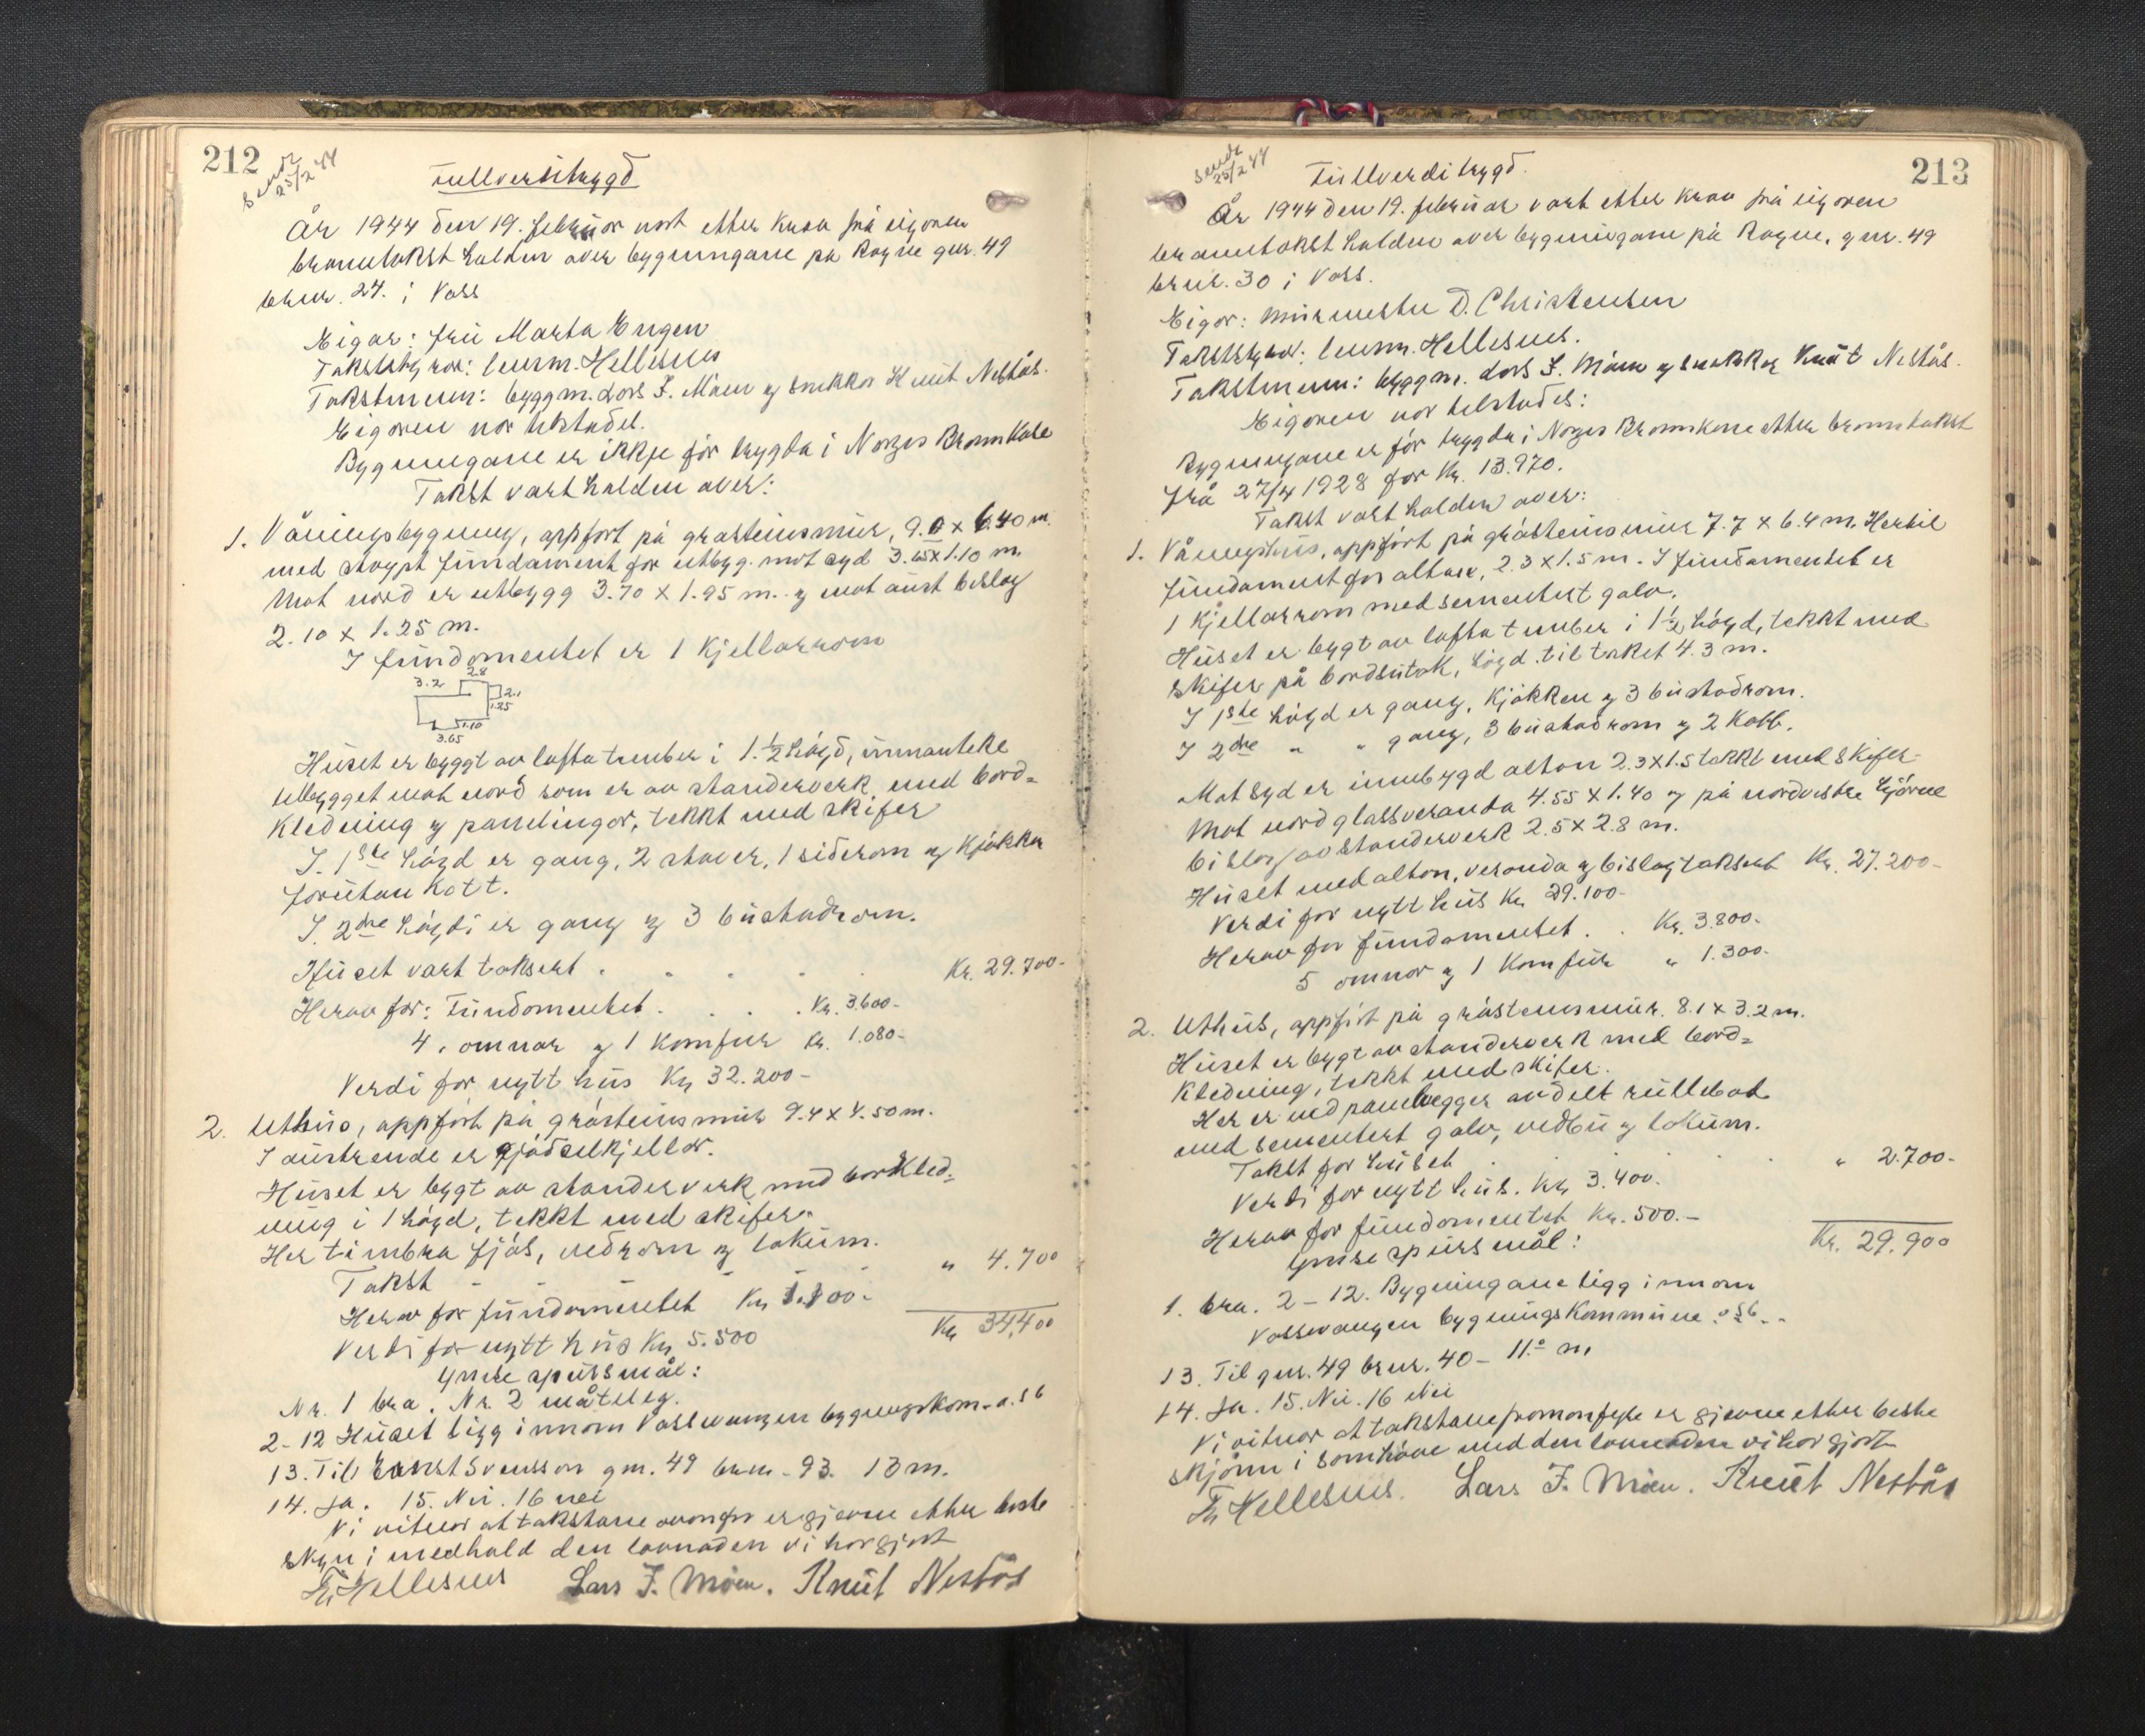 212
Sendt
25/2 44
Fullverditrygd
År 1944 den 19. februar vart etter krav frå eigaren
branntakst halden over bygningane på Rogne gnr. 49
brnr. 24. i Voss
Eigar: fru Marta Engen
Takststyrar: lensm. Hellesnes
Takstmenn: byggm. Lars J. Møen og snikkar Knut Nestås.
Eigaren var tilstades.
Bygningane er ikkje før trygda i Norges Brannkase
Takst vart halden over:
1. Våningsbygning, oppført på gråsteinsmur, 9.0 x 6.40 m.
med støypt fundament for utbyg. mot syd 3.65 x 1.10 m.
Mot nord er utbygg 3.70 x 1.95 m. og mot aust bislag
2.10 x 1.25 m.
I fundamentet er 1 kjellarrom
3.2 2.8 2.1 1.25 1.10 3.65
Huset er byggt av lafta tømber i 1.½ høgd, unnanteke
utbygget mot nord som er av standerverk med bord=
kledning og panelingar, tekkt med skifer
I. 1ste høgd er gang, 2 stover, 1 siderom og kjøkken
forutan kott.
I. 2dre høgdi er gang og 3 bustadrom.
Huset vart taksert . . . . Kr. 29.700-
Herav for: Fundamentet. . . . . Kr. 3.600-
4. omnar og 1 komfur Kr. 1.080-
Verdi for nytt hus Kr. 32.200-
2. Uthus, oppført på gråsteinsmur 9.4 x 4.50 m.
I austrende er gjødselkjellar.
Huset er bygt av standerverk med bordkled=
ning i 1 høgd, tekkt med skifer.
Her timbra fjøs, vedrom og lokum.
Takst - - - - - " 4.700
Herav for fundamentet Kr. 1.100-
Kr. 34.400
Verdi for nytt hus Kr. 5.500
Ymse spursmål:
Nr. 1 bra. Nr. 2 måteleg.
2-12 Huset ligg innom Vossevangen bygningskom. o.s b
13. Til Ernst Svensson gnr. 49 brnr. 93. 13 m.
14. Ja. 15. Nei. 16 nei
Vi vitnar at takstane ovanfor er gjevne etter beste
skyn i medhald den lovnaden vi har gjort
Hellesnes Lars J. Møen. Knut Nestås
213
Sendt
25/2 44
Fullverditrygd.
År 1944 den 19. februar vart etter krav frå eigaren
branntakst halden over bygningane på Rogne, gnr. 49
brnr. 30 i Voss.
Eigar: Murmester D. Christensen
Takststyrar: lensm. Hellesnes.
Takstmenn: byggm. Lars J. Møen og snikkar Knut Nestås.
Eigaren var tilstades:
Bygningane er før trygda i Norges Brannkasse etter branntakst
frå 27/4 1928 for Kr. 13.970.
Takst vart halden over:
1. Våningshus, oppført på gråsteinsmur 7.7 x 6.4 m. Hertil
fundament for altan, 2.3 x 1.5 m. I fundamentet er
1 kjellarrom med sementert golv.
Huset er bygt av lafta tømber i 1½ høgd, tekkt med
skifer på bordsutak, høgd til taket 4.3 m.
I 1ste høgd er gang, kjøkken og 3 bustadrom.
I 2dre " " gang, 3 bustadrom og 2 kott.
Mot syd er innbygd altan 2.3 x 1.5 tekkt med skifer-
Mot nord glassveranda 4.55 x 1.40 og på nordvestre hjørne
bislag av standerverk 2.5 x 2.8 m.
Huset med altan, veranda og bislag taksert Kr. 27.200-
Verdi for nytt hus Kr. 29.100-
Herav for fundamentet. . Kr. 3.800.
5 omnar og 1 Komfur " 1.300.
2. Uthus, oppført på gråsteinsmur. 8.1 x 3.2 m.
Huset er bygt av standerverk med bord=
kledning, tekkt med skifer.
Her er med panelvegger avdelt rullebod
med sementert golv, vedbu og lokum.
Takst for huset . . . . . " 2.700-
Verdi for nytt hus. Kr. 3.400.
Herav for fundamentet Kr. 500.-
Kr. 29.900
Ymse spursmål:
1. bra. 2-12. Bygningane ligg innom
Vossevangen bygningskommune. o s b.
13. Til gnr. 49 brnr. 40- 11.0 m
14. Ja. 15. Nei. 16 Nei
Vi vitnar at takstane er gjevne etter beste
skjønn i samhøve med den lovnaden vi har gjort
Hellesnes. Lars J. Møen. Knut Nestås